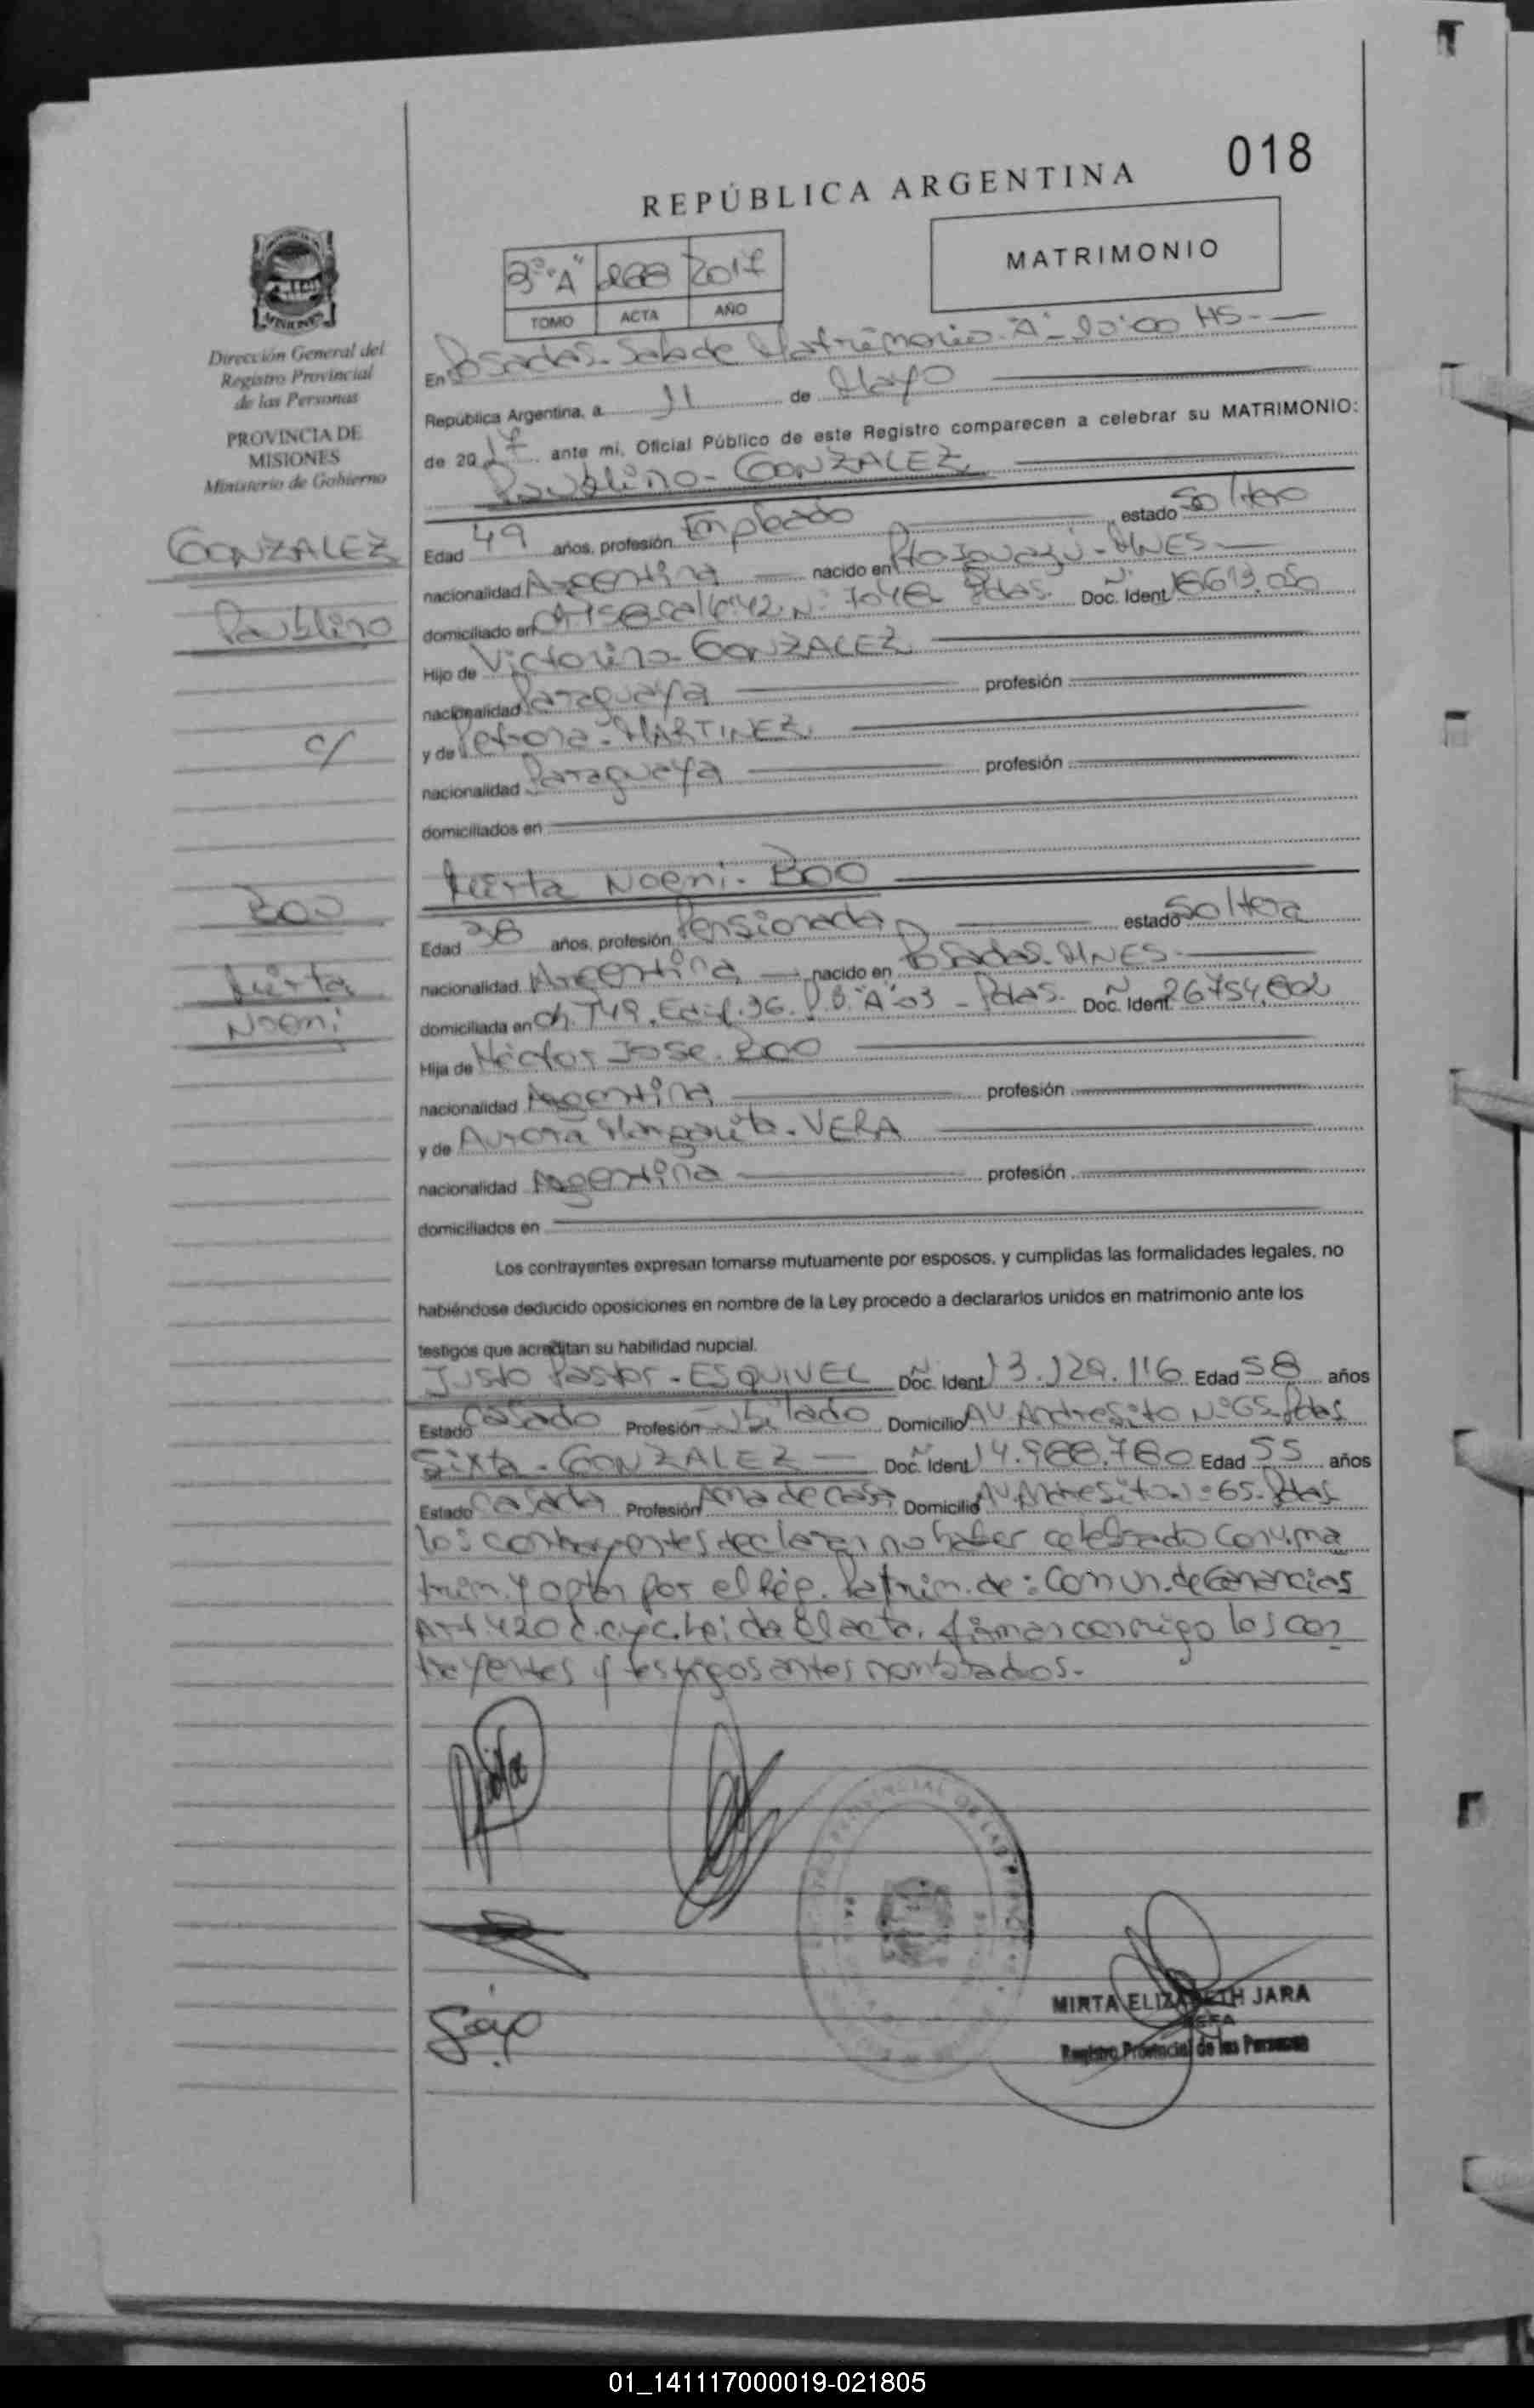 018
REPÚBLICA ARGENTINA
MATRIMONIO
3º "A" 2017
TOMO ACTA AÑO
Dirección General del
Registro Provincial
de las Personas
PROVINCIA DE
MISIONES
Ministerio de Gobierno
En Posadas - Sala de Matrimonio "A" - 10:00 HS -
República Argentina, a 11 de Mayo
de 2017 ante mi, Oficial Público de este Registro comparecen a celebrar su MATRIMONIO:
Paublino - GONZALEZ
GONZALEZ
Paublino
c/
BOO
Mirta
Noemi
Edad 49 años, profesión Empleado estado Soltero
nacionalidad Argentina nacido en Pto Iguazú - MNES -
domiciliado en Nº Pdas. Doc. Ident
Hijo de Victorino GONZALEZ
nacionalidad Paraguaya profesión
y de MARTINEZ
nacionalidad Paraguaya profesión
domiciliados en
Mirta Noemi - BOO
Edad 38 años, profesión Pensionada estado Soltera
nacionalidad Argentina nacido en Posadas - MNES -
domiciliada en Ch. 149. Edif. 36. P.B. "A" 03 - Pdas. Doc. Ident 26754.802
Hija de Héctor José - BOO
nacionalidad Argentina profesión
y de Aurora Margarita - VERA
nacionalidad Argentina profesión
domiciliados en
Los contrayentes expresan tomarse mutuamente por esposos, y cumplidas las formalidades legales, no
habiéndose deducido oposiciones en nombre de la Ley procedo a declararlos unidos en matrimonio ante los
testigos que acreditan su habilidad nupcial.
Justo Pastor - ESQUIVEL Doc. Ident 13.129.116 Edad 58 años
Estado Casado Profesión Jubilado Domicilio AV Andresito Nº 65 - Pdas
Sixta - GONZALEZ Doc. Ident 14.988.780 Edad 55 años
Estado Casada Profesión Ama de casa Domicilio AV. Andresito Nº 65 - Pdas
los contrayentes declaran no haber celebrado Conv. ma
trim. y optan por el Rég. Patrim. de: Comun. de Ganancias
Art 420 C.C y C. Leida el acta, firman conmigo los con
trayentes y testigos antes nombrados.
MIRTA ELIZABETH JARA
JEFA
Registro Provincial de las Personas
01_141117000019-021805